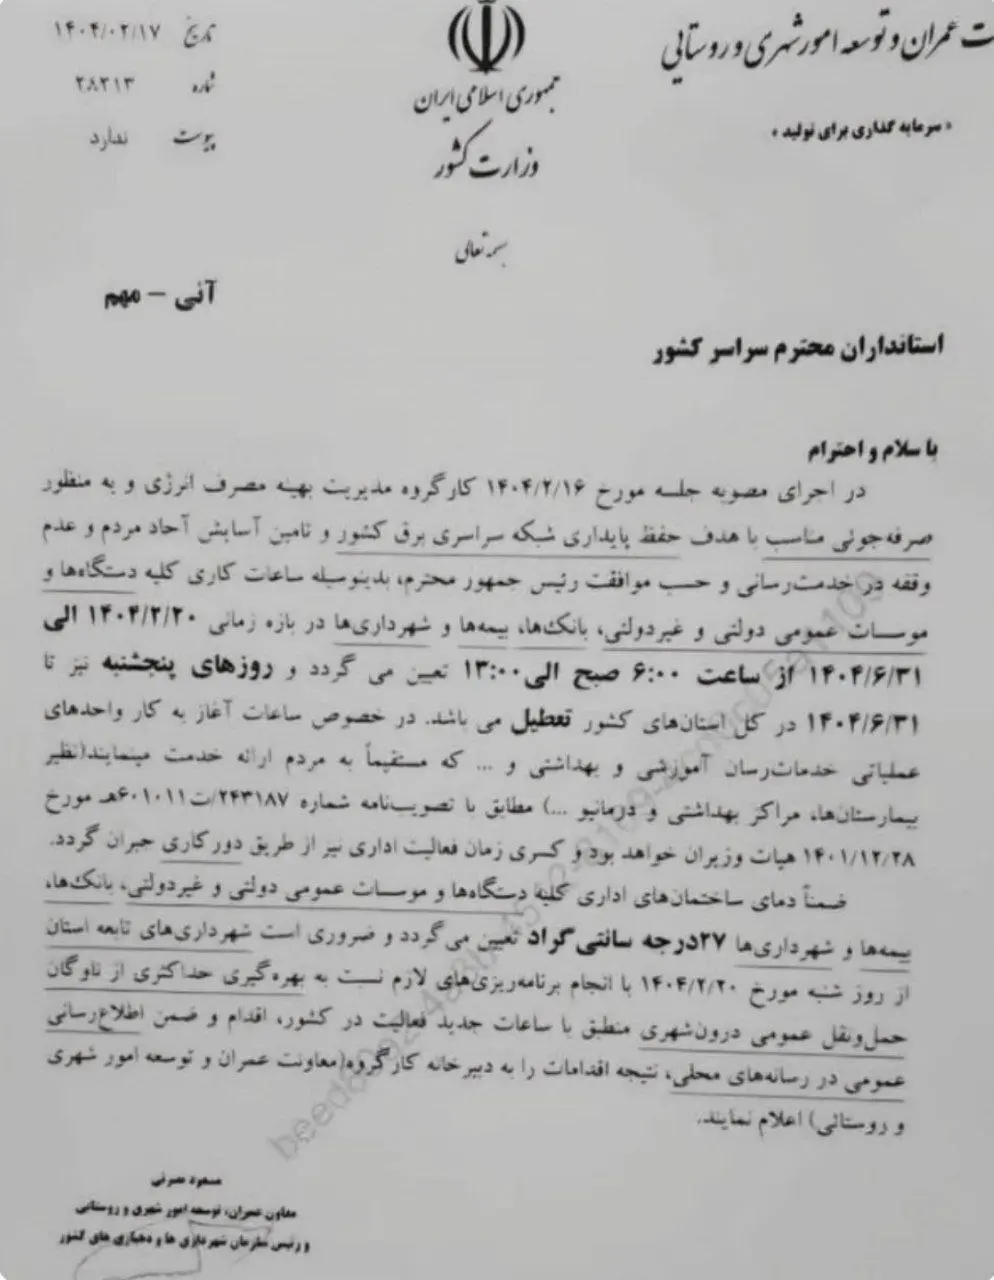 ت عمران و توسعه امور شهری و روستایی
« سرمایه گذاری برای تولید »
جمهوری اسلامی ایران
وزارت کشور
بسمه تعالی
تاریخ ۱۴۰۴/۰۲/۱۷
شماره ۲۸۲۱۳
پیوست ندارد
آنی – مهم
استانداران محترم سراسر کشور
با سلام و احترام
در اجرای مصوبه جلسه مورخ ۱۴۰۴/۲/۱۶ کارگروه مدیریت بهینه مصرف انرژی و به منظور
صرفه‌جوئی مناسب با هدف حفظ پایداری شبکه سراسری برق کشور و تامین آسایش آحاد مردم و عدم
وقفه در خدمت‌رسانی و حسب موافقت رئیس جمهور محترم، بدینوسیله ساعات کاری کلیه دستگاه‌ها و
موسسات عمومی دولتی و غیردولتی، بانک‌ها، بیمه‌ها و شهرداری‌ها در بازه زمانی ۱۴۰۴/۲/۲۰ الی
۱۴۰۴/۶/۳۱ از ساعت ۶:۰۰ صبح الی۱۳:۰۰ تعیین می گردد و روزهای پنجشنبه نیز تا
۱۴۰۴/۶/۳۱ در کل استان‌های کشور تعطیل می باشد. در خصوص ساعات آغاز به کار واحدهای
عملیاتی خدمات‌رسان آموزشی و بهداشتی و ... که مستقیماً به مردم ارائه خدمت مینمایند(نظیر
بیمارستان‌ها، مراکز بهداشتی و درمانیو ...) مطابق با تصویب‌نامه شماره ۲۴۳۱۸۷/ت۶۰۱۰۱۱هـ مورخ
۱۴۰۱/۱۲/۲۸ هیات وزیران خواهد بود و کسری زمان فعالیت اداری نیز از طریق دورکاری جبران گردد.
ضمناً دمای ساختمان‌های اداری کلیه دستگاه‌ها و موسسات عمومی دولتی و غیردولتی، بانک‌ها،
بیمه‌ها و شهرداری‌ها ۲۷درجه سانتی‌گراد تعیین می‌گردد و ضروری است شهرداری‌های تابعه استان
از روز شنبه مورخ ۱۴۰۴/۲/۲۰ با انجام برنامه‌ریزی‌های لازم نسبت به بهره‌گیری حداکثری از ناوگان
حمل‌ونقل عمومی درون‌شهری منطبق با ساعات جدید فعالیت در کشور، اقدام و ضمن اطلاع‌رسانی
عمومی در رسانه‌های محلی، نتیجه اقدامات را به دبیرخانه کارگروه(معاونت عمران و توسعه امور شهری
و روستائی) اعلام نمایند.
مسعود نصرتی
معاون عمران، توسعه امور شهری و روستایی
و رئیس سازمان شهرداری ها و دهیاری های کشور